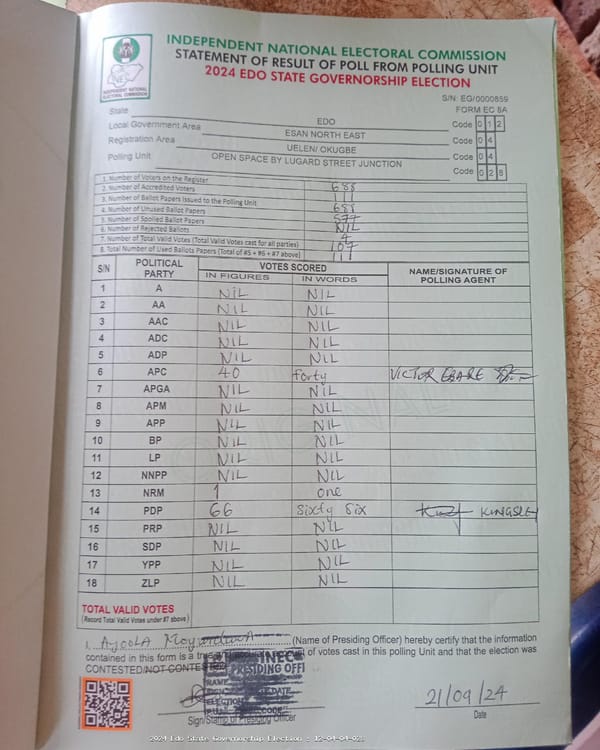 INDEPENDENT NATIONAL ELECTORAL COMMISSION
STATEMENT OF RESULT OF POLL FROM POLLING UNIT
2024 EDO STATE GOVERNORSHIP ELECTION
INDEPENDENT NATIONAL ELECTORAL COMMISSION
S/N: EG/0000859
FORM EC 8A
State EDO Code 0 1 2
Local Government Area ESAN NORTH EAST Code 0 4
Registration Area UELEN/ OKUGBE Code 0 4
Polling Unit OPEN SPACE BY LUGARD STREET JUNCTION Code 0 2 8
1. Number of Voters on the Register 688
2. Number of Accredited Voters 111
3. Number of Ballot Papers Issued to the Polling Unit 688
4. Number of Unused Ballot Papers 577
5. Number of Spoiled Ballot Papers NIL
6. Number of Rejected Ballots 4
7. Number of Total Valid Votes (Total Valid Votes cast for all parties) 107
8. Total Number of Used Ballots Papers (Total of #5 + #6 + #7 above) 111
S/N POLITICAL PARTY VOTES SCORED NAME/SIGNATURE OF POLLING AGENT
IN FIGURES IN WORDS
1 A NIL NIL
2 AA NIL NIL
3 AAC NIL NIL
4 ADC NIL NIL
5 ADP NIL NIL
6 APC 40 forty VICTOR EBARE
7 APGA NIL NIL
8 APM NIL NIL
9 APP NIL NIL
10 BP NIL NIL
11 LP NIL NIL
12 NNPP NIL NIL
13 NRM 1 one
14 PDP 66 Sixty Six KINGSLEY
15 PRP NIL NIL
16 SDP NIL NIL
17 YPP NIL NIL
18 ZLP NIL NIL
TOTAL VALID VOTES
(Record Total Valid Votes under #7 above)
I, AJOOLA (Name of Presiding Officer) hereby certify that the information
contained in this form is a of votes cast in this polling Unit and that the election was
CONTESTED/NOT CONTESTED
INEC
PRESIDING OFFI
Sign/Stamp of Presiding Officer
21/09/24
Date
2024 Edo State Governorship Election - 12-04-04-028